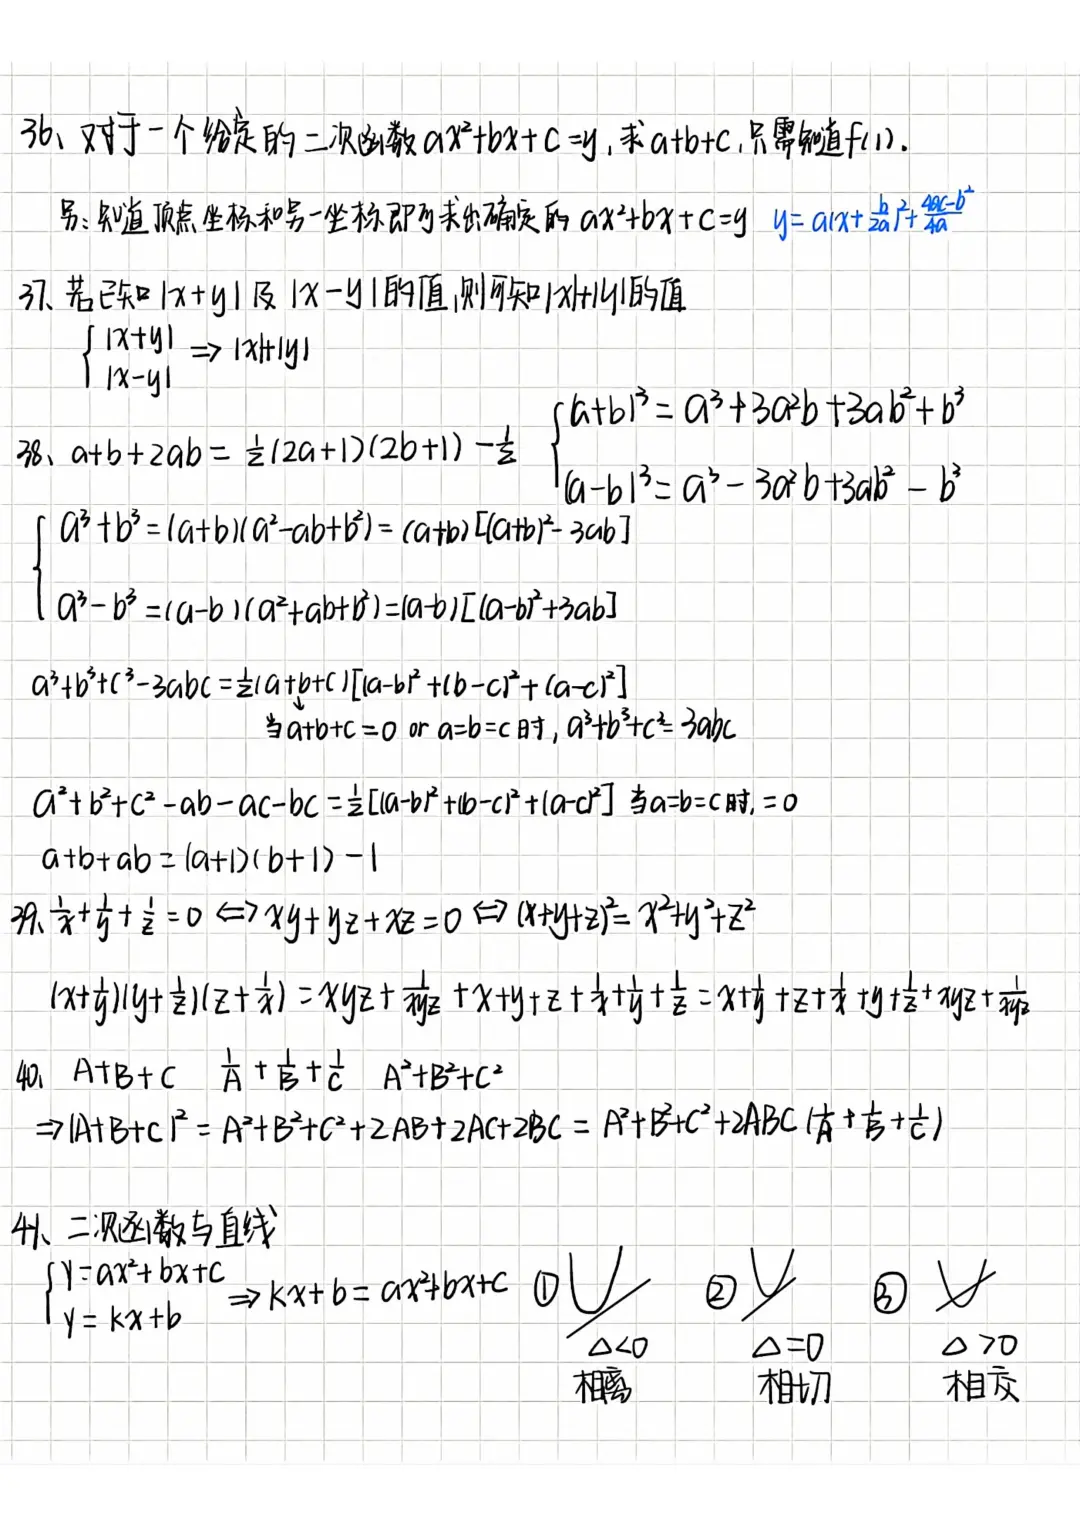 36、对于一个给定的二次函数ax²+bx+c=y,求a+b+c,只需知道f(1).
另:知道顶点坐标和另一坐标即可求出确定的ax²+bx+c=y y=a(x+b/2a)²+(4ac-b²)/4a
37、若已知|x+y|及|x-y|的值,则可知|x|+|y|的值
{|x+y|
|x-y| ⇒ |x|+|y|
38、a+b+2ab=½(2a+1)(2b+1)-½
{(a+b)³=a³+3a²b+3ab²+b³
(a-b)³=a³-3a²b+3ab²-b³
{a³+b³=(a+b)(a²-ab+b²)=(a+b)[(a+b)²-3ab]
a³-b³=(a-b)(a²+ab+b²)=(a-b)[(a-b)²+3ab]
a³+b³+c³-3abc=½(a+b+c)[(a-b)²+(b-c)²+(a-c)²]
↓
当a+b+c=0 or a=b=c时,a³+b³+c³=3abc
a²+b²+c²-ab-ac-bc=½[(a-b)²+(b-c)²+(a-c)²] 当a=b=c时,=0
a+b+ab=(a+1)(b+1)-1
39、1/x+1/y+1/z=0⇔xy+yz+xz=0⇔(x+y+z)²=x²+y²+z²
(x+1/y)(y+1/z)(z+1/x)=xyz+1/xyz+x+y+z+1/x+1/y+1/z=x+1/y+z+1/x+y+1/z+xyz+1/xyz
40、A+B+C 1/A+1/B+1/C A²+B²+C²
⇒(A+B+C)²=A²+B²+C²+2AB+2AC+2BC=A²+B²+C²+2ABC(1/A+1/B+1/C)
41、二次函数与直线
{y=ax²+bx+c
y=kx+b ⇒kx+b=ax²+bx+c ① ② ③
△<0 △=0 △>0
相离 相切 相交